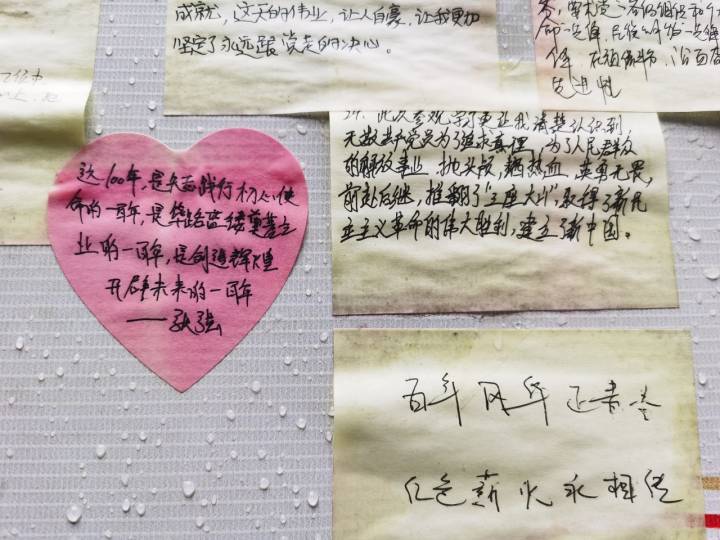 成就，这天的伟业，让人自豪，让我更加
坚定了永远跟党走的决心。
命一定难
任
先进性
这100年，是矢志践行初心使
命的一百年，是筚路蓝缕奠基立
业的一百年，是创造辉煌
开辟未来的一百年
此次参观学习更让我清楚认识到
无数共产党员为了追求真理，为了人民群众
的解放事业，抛头颅，洒热血，英勇无畏，
前赴后继，推翻了"三座大山"，取得了新民
主主义革命的伟大胜利，建立了新中国。
百年风华正青春
红色薪火永相传